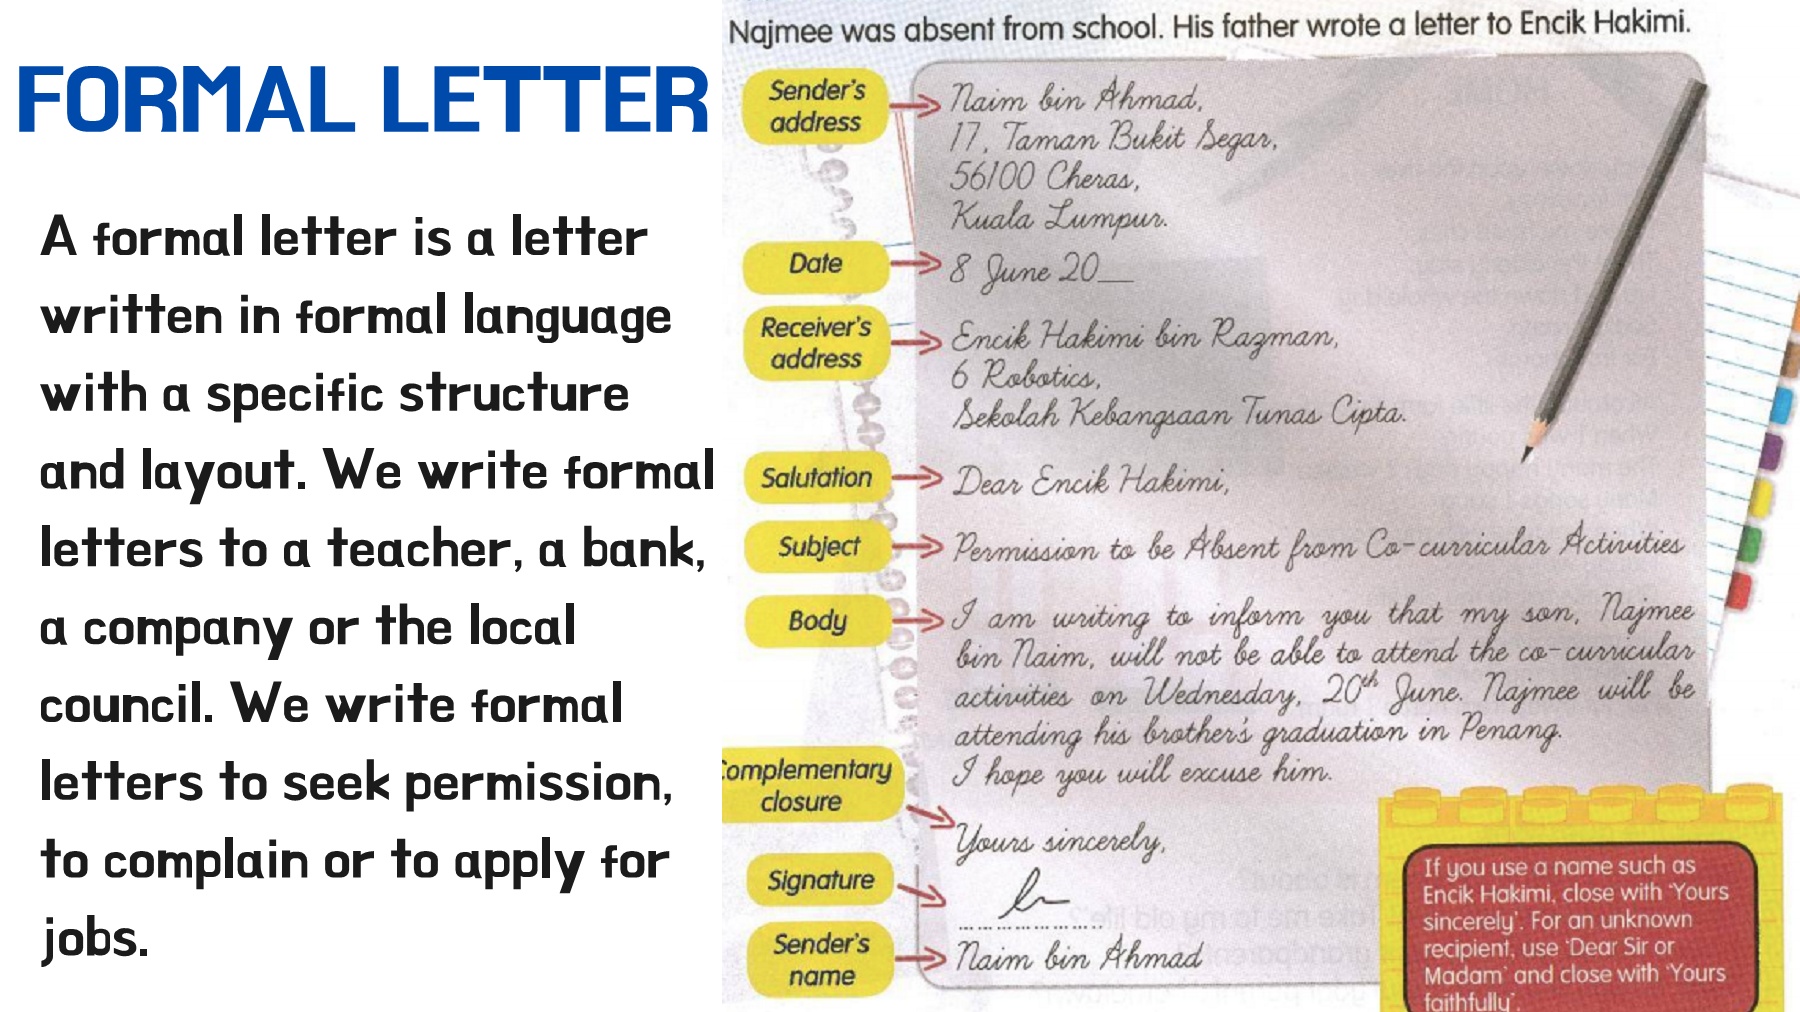 FORMAL LETTER
A formal letter is a letter
written in formal language
with a specific structure
and layout. We write formal
letters to a teacher, a bank,
a company or the local
council. We write formal
letters to seek permission,
to complain or to apply for
jobs.
Najmee was absent from school. His father wrote a letter to Encik Hakimi.
Sender's
address
Naim bin Ahmad,
17, Taman Bukit Segar,
56100 Cheras,
Kuala Lumpur.
Date
8 June 20__
Receiver's
address
Encik Hakimi bin Razman,
6 Robotics,
Sekolah Kebangsaan Tunas Cipta.
Salutation
Dear Encik Hakimi,
Subject
Permission to be Absent from Co-curricular Activities
Body
I am writing to inform you that my son, Najmee
bin Naim, will not be able to attend the co-curricular
activities on Wednesday, 20th June. Najmee will be
attending his brother's graduation in Penang.
I hope you will excuse him.
omplementary
closure
Yours sincerely,
Signature
Sender's
name
Naim bin Ahmad
If you use a name such as
Encik Hakimi, close with 'Yours
sincerely'. For an unknown
recipient, use 'Dear Sir or
Madam' and close with 'Yours
faithfully'.